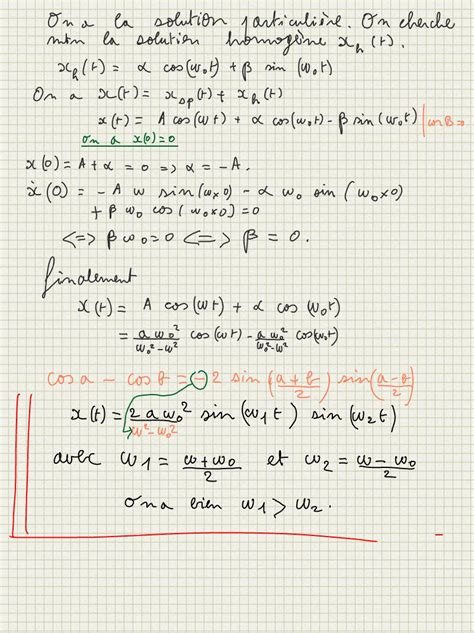 On a la solution particulière. On cherche
mtn la solution homogène x_h(t).
x_h(t) = α cos(ω₀t) + β sin (ω₀t)
On a x(t) = x_sp(t) + x_h(t)
x(t) = A cos(ωt) + α cos(ω₀t) - β sin(ω₀t) | car β=0
on a x(0)=0
x(0) = A + α = 0 => α = -A.
ẋ(0) = - A ω sin(ω×0) - α ω₀ sin (ω₀×0)
+ β ω₀ cos(ω₀×0) = 0
<=> β ω₀ = 0 <=> β = 0.
finalement
x(t) = A cos(ωt) + α cos (ω₀t)
= a ω₀²/(ω₀²-ω²) cos(ωt) - a ω₀²/(ω₀²-ω²) cos(ω₀t)
cos a - cos b = -2 sin((a+b)/2) sin((a-b)/2)
x(t) = 2 a ω₀²/(ω²-ω₀²) sin(ω₁t) sin(ω₂t)
avec ω₁ = (ω+ω₀)/2 et ω₂ = (ω-ω₀)/2
On a bien ω₁ > ω₂.